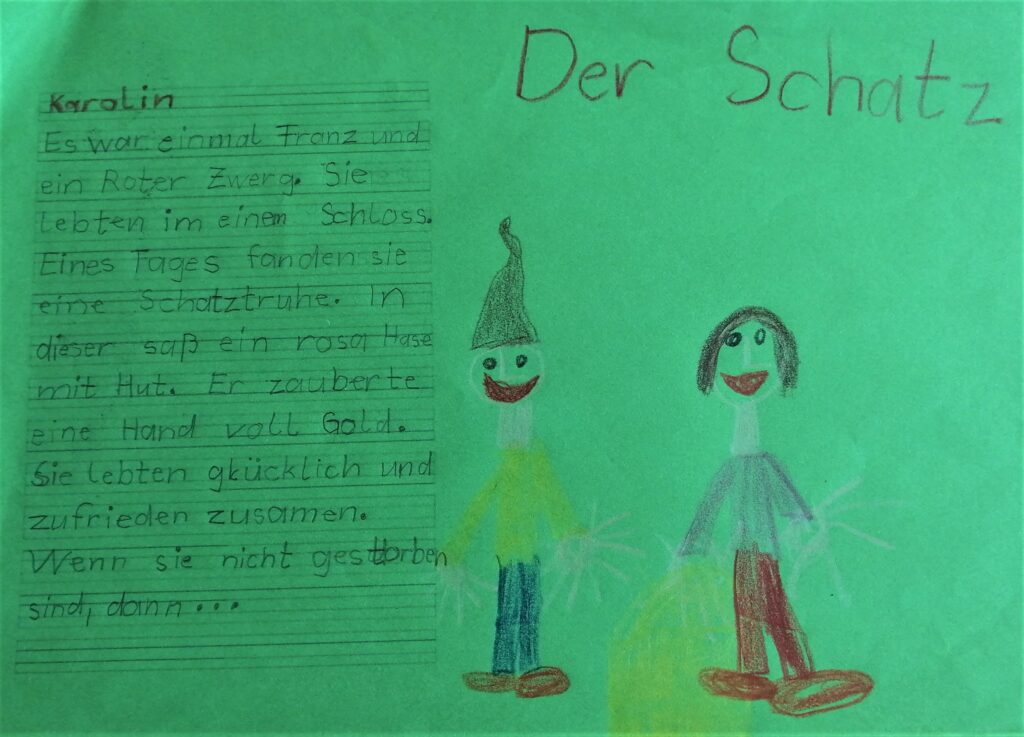 Der Schatz
Karolin
Es war einmal Franz und
ein Roter Zwerg. Sie
lebten im einem Schloss.
Eines Tages fanden sie
eine Schatztruhe. In
dieser saß ein rosa Hase
mit Hut. Er zauberte
eine Hand voll Gold.
Sie lebten glücklich und
zufrieden zusamen.
Wenn sie nicht gestorben
sind, dann...